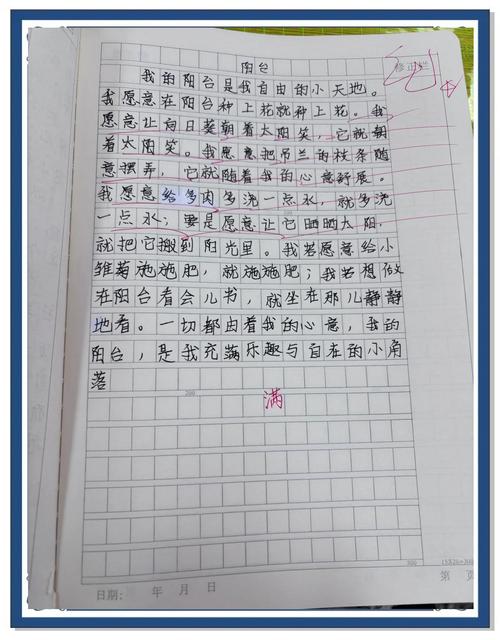 阳台
修正栏
我的阳台是我自由的小天地。
我愿意在阳台种上花就种上花。我
愿意让向日葵朝着太阳笑，它就朝
着太阳笑。我愿意把吊兰的枝条随
意摆弄，它就随着我的心意舒展。
我愿意给多肉多浇一点水，就多浇
一点水；要是愿意让它晒晒太阳，
就把它搬到阳光里。我若愿意给小
雏菊施施肥，就施施肥；我若想做
在阳台看会儿书，就坐在那儿静静
地看。一切都由着我的心意，我的
阳台，是我充满乐趣与自在的小角
落
200
满
300
15X20=300
日期： 年 月 日
第 页